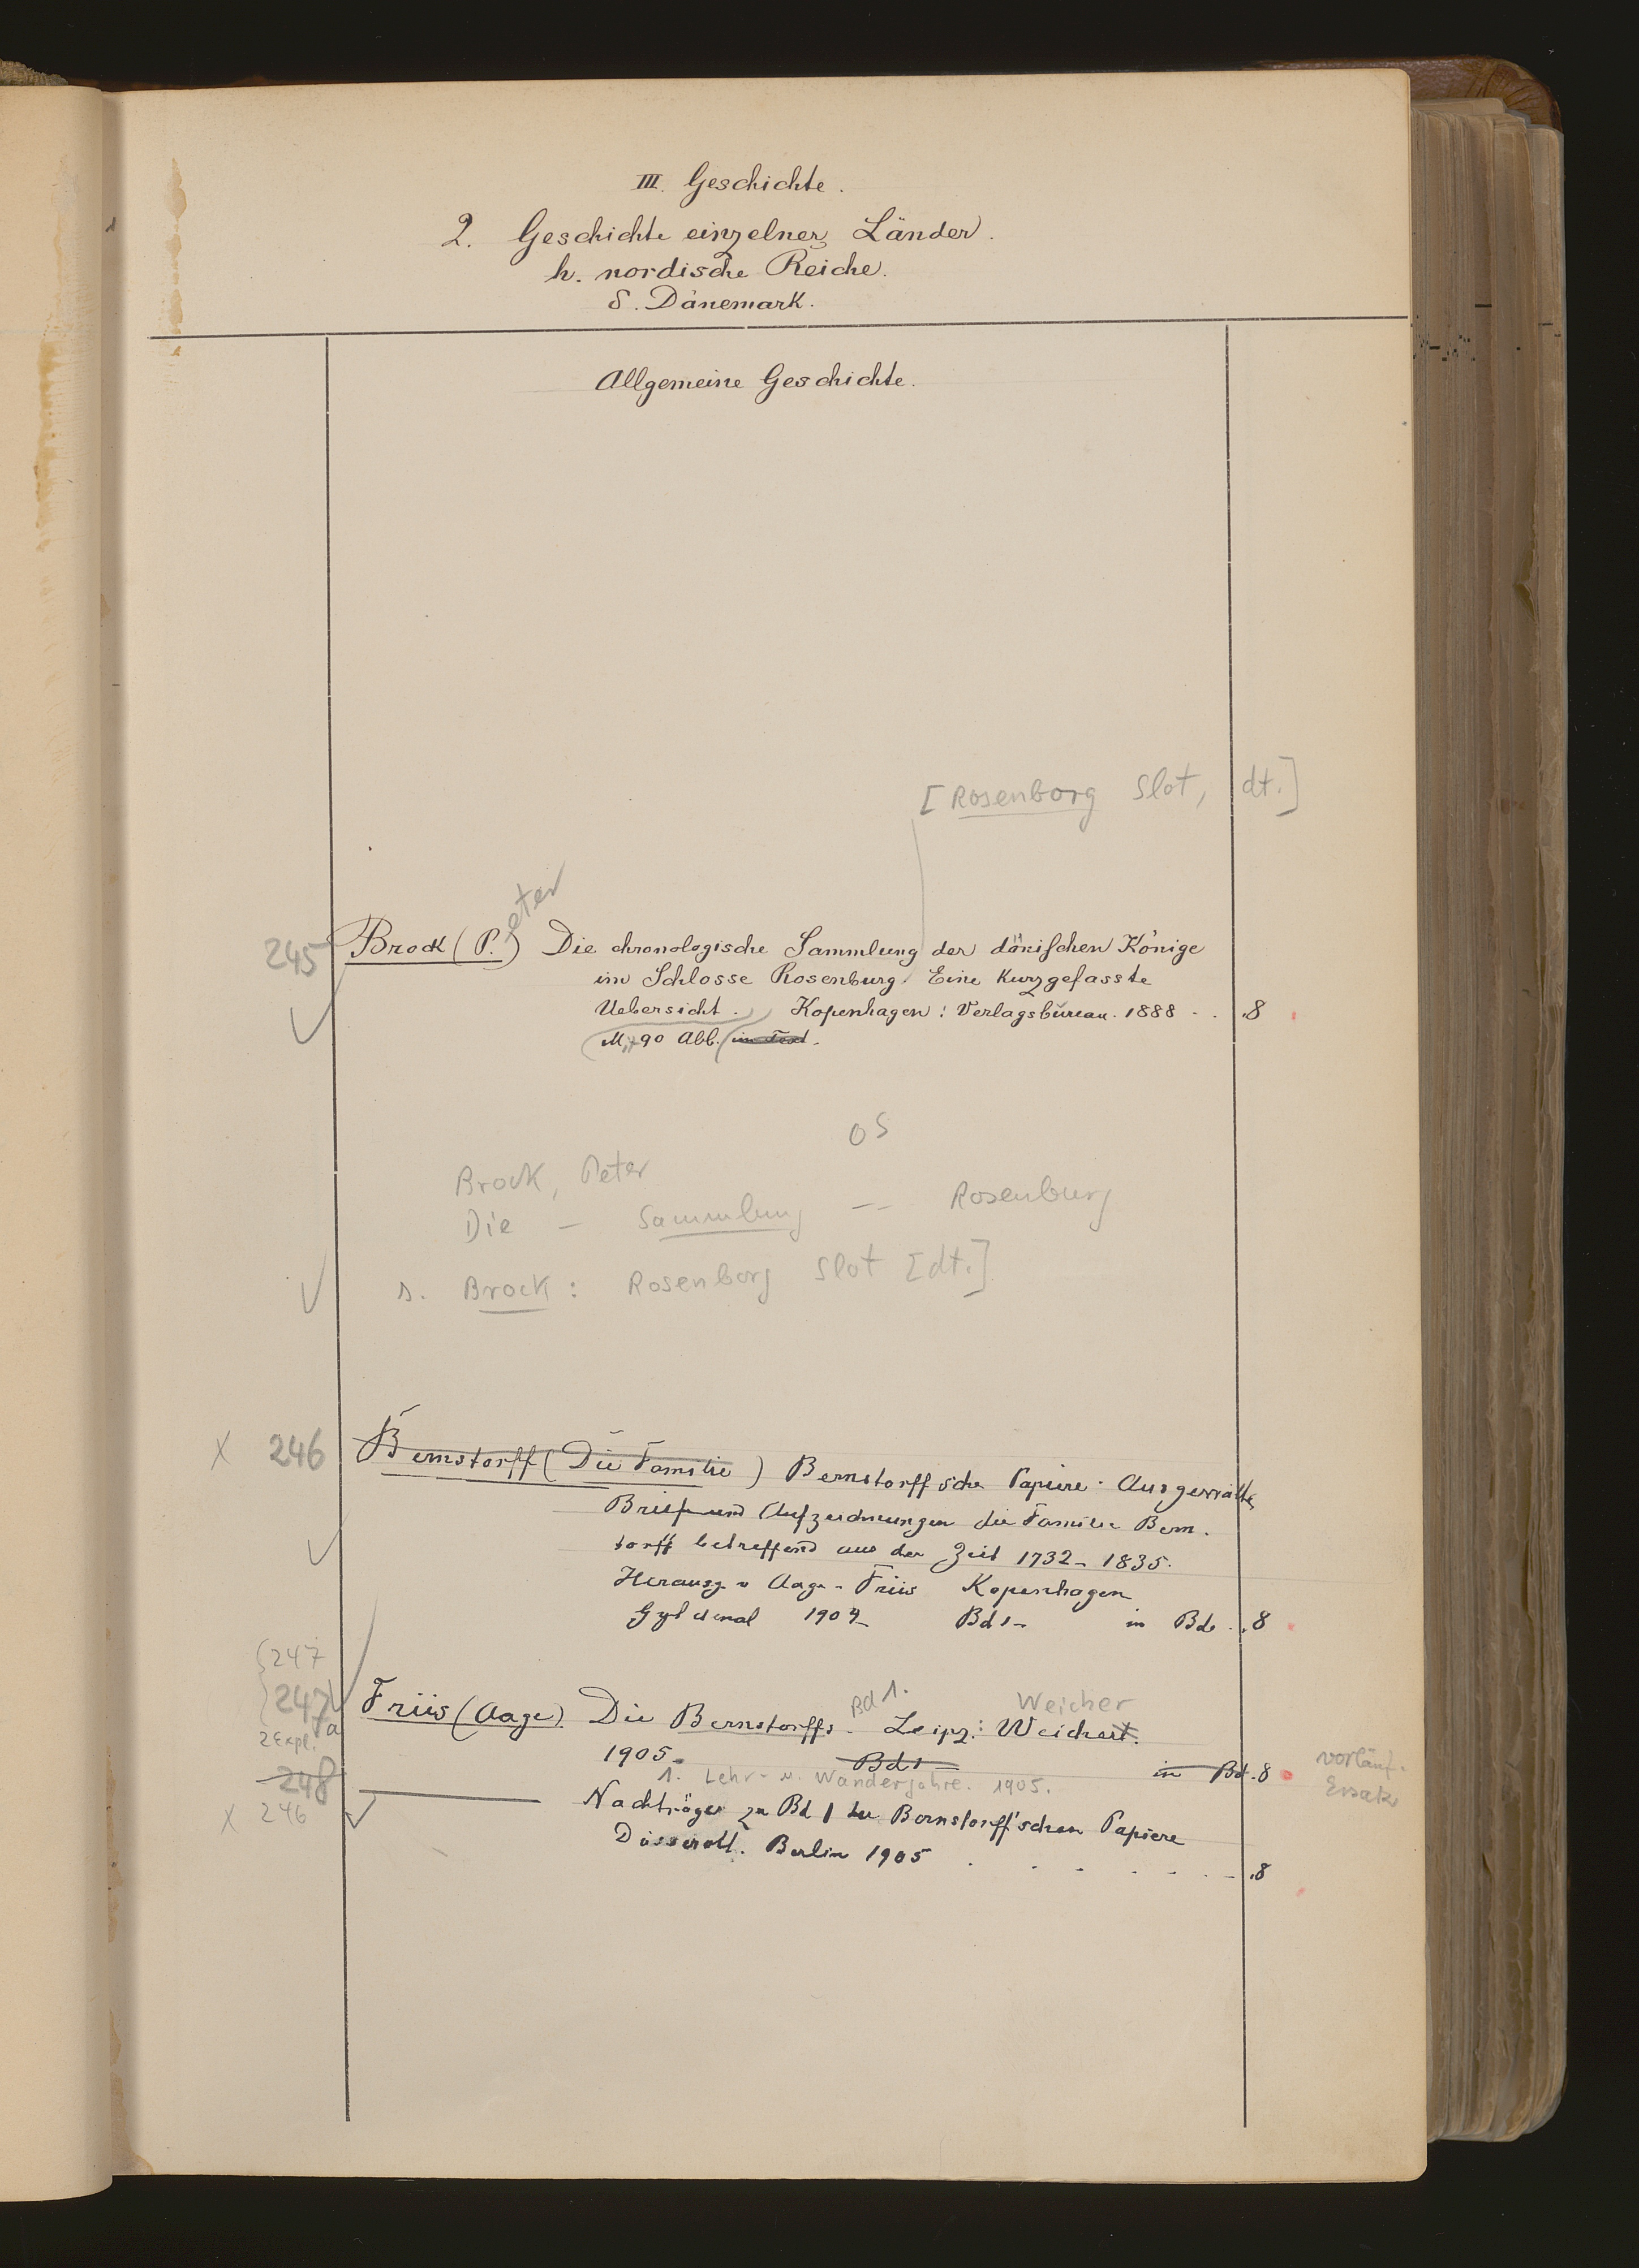 III. Geschichte.
2. Geschichte einzelner Länder.
h. nordische Reiche.
δ. Dänemark.
Allgemeine Geschichte.
[Rosenborg Slot, dt.]
eter
245 Brock (P.) Die chronologische Sammlung der dänischen Könige
im Schlosse Rosenburg. Eine kurzgefasste
Uebersicht. Kopenhagen: Verlagsbureau. 1888 . . 8
Mit 90 Abb. im Text.
OS
Brock, Peter
Die — Sammlung — Rosenburg
s. Brock: Rosenborg Slot [dt.]
X 246 Bernstorff (Die Familie) Bernstorffsche Papiere. Ausgewählte
Briefe und Aufzeichnungen die Familie Bern-
storff betreffend aus der Zeit 1732-1835.
Herausg v Aage Friis Kopenhagen
Gyldendal 1904- Bd 1- in Bde . 8
247
Bd 1. Weicher
247 Friis (Aage) Die Bernstorffs. Leipz: Weichert.
7a
2 Expl.
1905- Bd 1- in Bd. 8 vorläuf.
Ersatz
1. Lehr- u. Wanderjahre. 1905.
248 ——— Nachträge zu Bd 1 der Bernstorff'schen Papiere
X 246
Dissert. Berlin 1905 . . . . . . 8